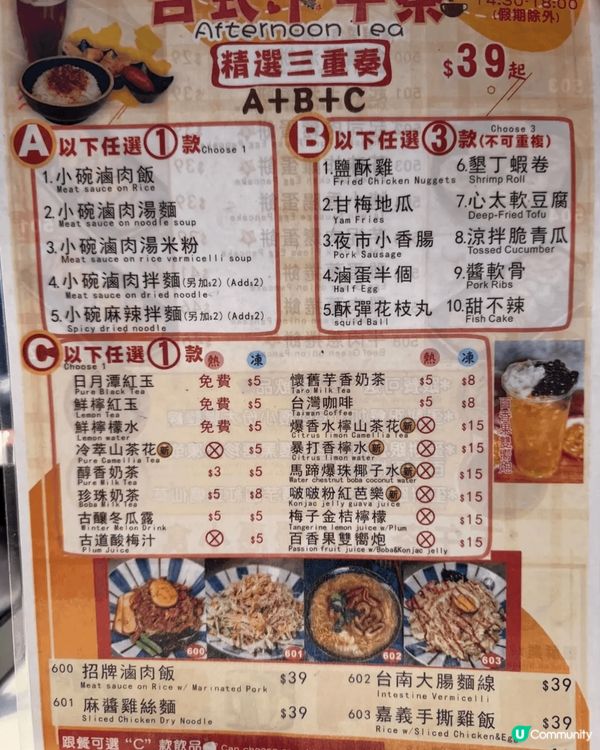 台式下午茶
14:30-18:00
Afternoon Tea
(假期除外)
精選三重奏
$39起
A+B+C
A 以下任選①款 Choose 1
1.小碗滷肉飯
Meat sauce on Rice
2.小碗滷肉湯麵
Meat sauce on noodle soup
3.小碗滷肉湯米粉
Meat sauce on rice vermicelli soup
4.小碗滷肉拌麵(另加$2) (Add$2)
Meat sauce on dried noodle
5.小碗麻辣拌麵(另加$2) (Add$2)
Spicy dried noodle
B 以下任選③款(不可重複) Choose 3
1.鹽酥雞
Fried Chicken Nuggets
2.甘梅地瓜
Yam Fries
3.夜市小香腸
Pork Sausage
4.滷蛋半個
Half Egg
5.酥彈花枝丸
squid Ball
6.墾丁蝦卷
Shrimp Roll
7.心太軟豆腐
Deep-Fried Tofu
8.涼拌脆青瓜
Tossed Cucumber
9.醬軟骨
Pork Ribs
10.甜不辣
Fish Cake
C 以下任選①款 熱 凍
Choose 1
日月潭紅玉 免費 $5
Pure Black Tea
鮮檸紅玉 免費 $5
Lemon Tea
鮮檸檬水 免費 $5
Lemon water
冷萃山茶花新 ⊗ $5
Pure Camellia Tea
醇香奶茶 $3 $5
Pure Milk Tea
珍珠奶茶 $5 $8
Boba Milk Tea
古釀冬瓜露 $5 $5
Winter Melon Drink
古道酸梅汁 ⊗ $5
Plum Juice
熱 凍
懷舊芋香奶茶 $5 $8
Taro Milk Tea
台灣咖啡 $5 $8
Taiwan Coffee
爆香水檸山茶花新 ⊗ $15
Citrus limon Camellia Tea
暴打香檸水新 ⊗ $15
Citrus limon water
馬蹄爆珠椰子水新 ⊗ $15
Water chestnut boba coconut water
啵啵粉紅芭樂新 ⊗ $15
Konjac jelly guava juice
梅子金桔檸檬 ⊗ $15
Tangerine lemon juice w/Plum
百香果雙嚮炮 ⊗ $15
Passion fruit juice w/Boba&Konjac jelly
百香果雙嚮炮
600
601
602
603
600 招牌滷肉飯 $39
Meat sauce on Rice w/ Marinated Pork
601 麻醬雞絲麵 $39
Sliced Chicken Dry Noodle
602 台南大腸麵線 $39
Intestine Vermicelli
603 嘉義手撕雞飯 $39
Rice w/Sliced Chicken&Egg
跟餐可選 "C" 款飲品
Can choose
U Community